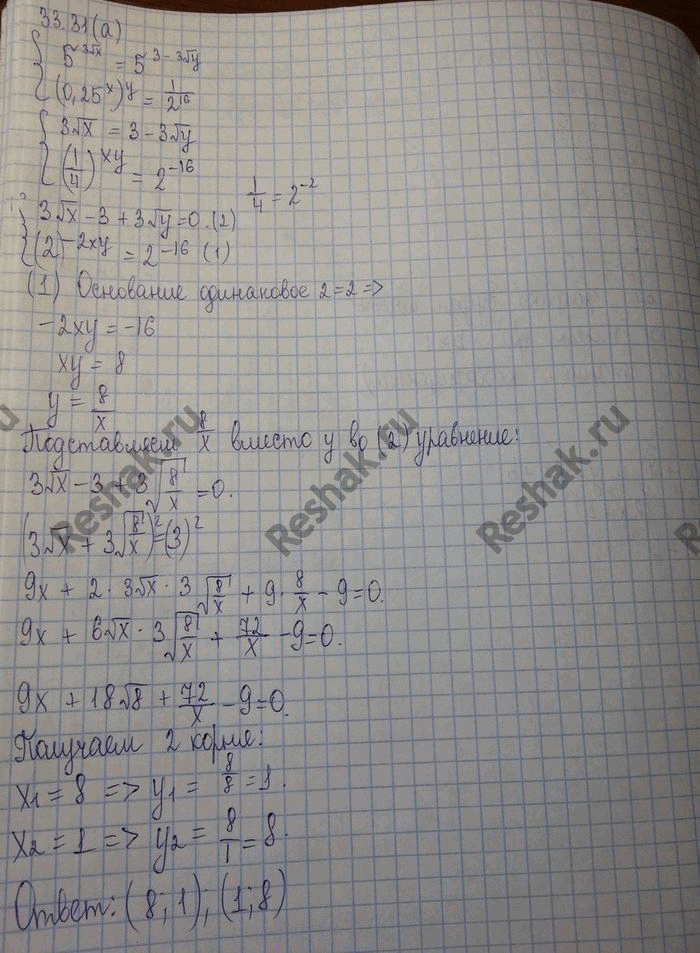 33.31(а)
5^{3√x} = 5^{3-3√y}
(0,25^x)^y = 1/2^{16}
3√x = 3 - 3√y
(1/4)^{xy} = 2^{-16}
1/4 = 2^{-2}
3√x - 3 + 3√y = 0. (2)
(2)^{-2xy} = 2^{-16} (1)
(1) Основание одинаковое 2=2 =>
-2xy = -16
xy = 8
y = 8/x
Подставляем 8/x вместо y во (2) уравнение:
3√x - 3 + 3√(8/x) = 0.
(3√x + 3√(8/x))² = (3)²
9x + 2 · 3√x · 3√(8/x) + 9 · 8/x - 9 = 0.
9x + 6√x · 3√(8/x) + 72/x - 9 = 0.
9x + 18√8 + 72/x - 9 = 0.
Получаем 2 корня:
x1 = 8 => y1 = 8/8 = 1.
x2 = 1 => y2 = 8/1 = 8.
Ответ: (8; 1); (1; 8)
Reshak.ru
Reshak.ru
Reshak.ru